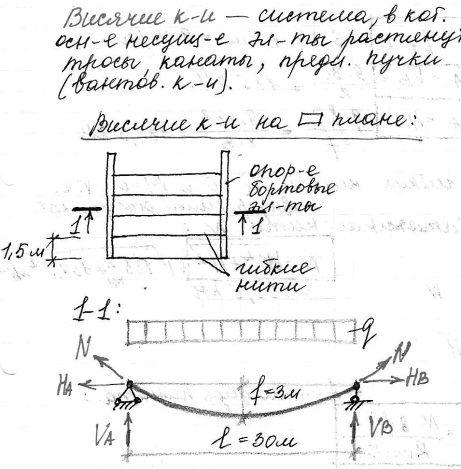 Висячие к-и — система, в кот.
осн-е несущ-е эл-ты растянут
тросы, канаты, предн. пучки
(вантов. к-и).
Висячие к-и на ▭ плане:
опор-е
бортовые
эл-ты
1 1
1,5м
гибкие
нити
1-1:
q
N N
HA HB
f=3м
VA VB
l=30м